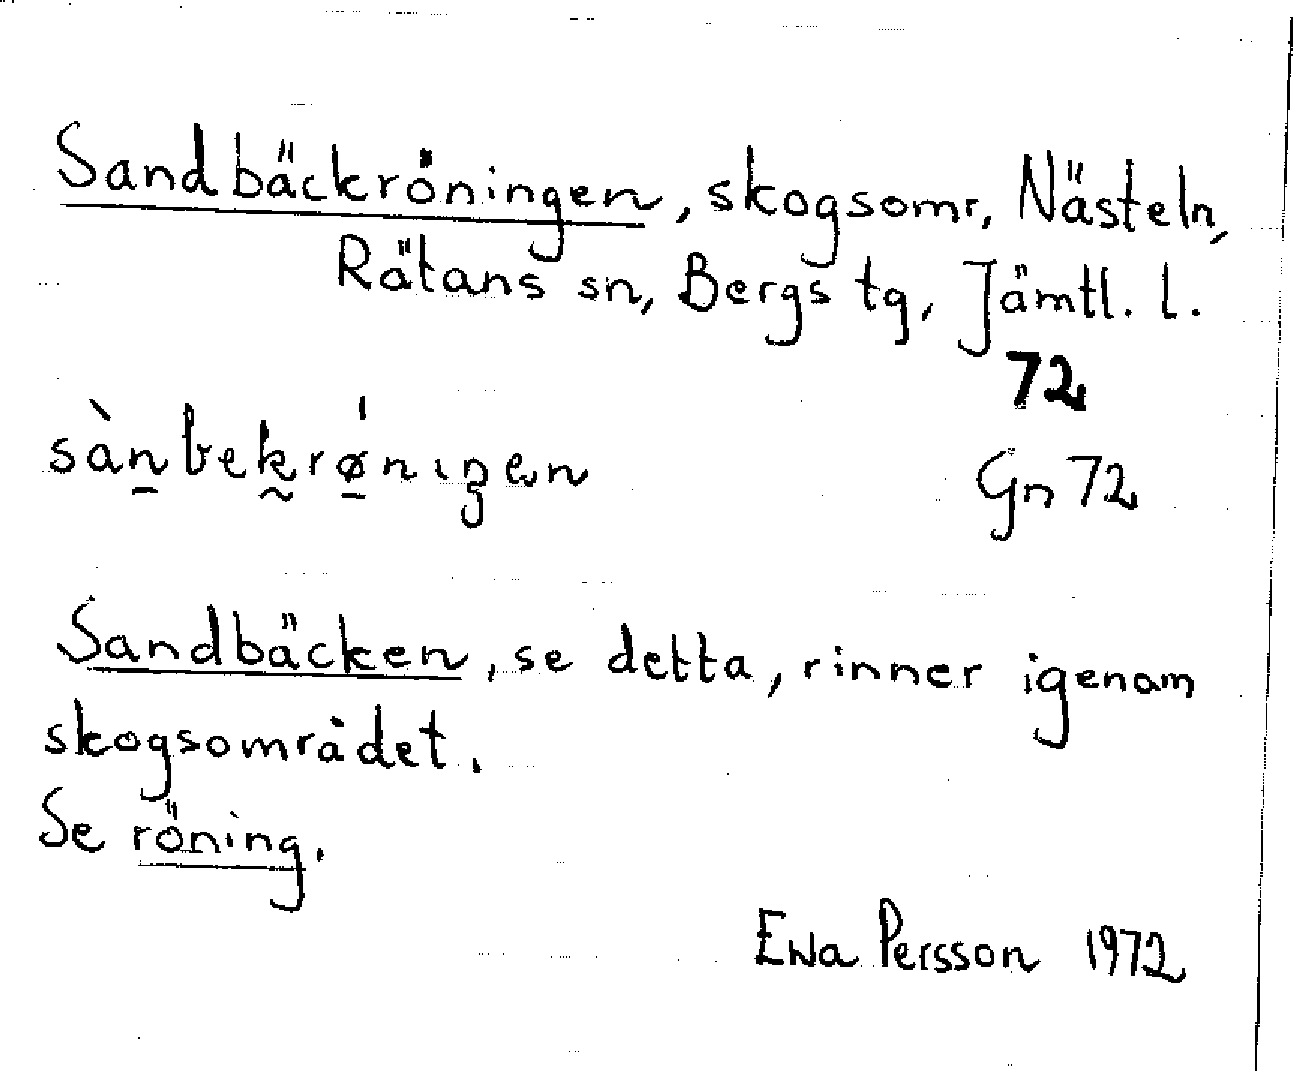 Sandbäckröningen, skogsomr, Nästeln,
Rätans sn, Bergs tg, Jämtl. l.
72
sàn̠bek̰rǿ̠nıŋen
Gn 72
Sandbäcken, se detta, rinner igenom
skogsområdet.
Se röning.
Ewa Persson 1972